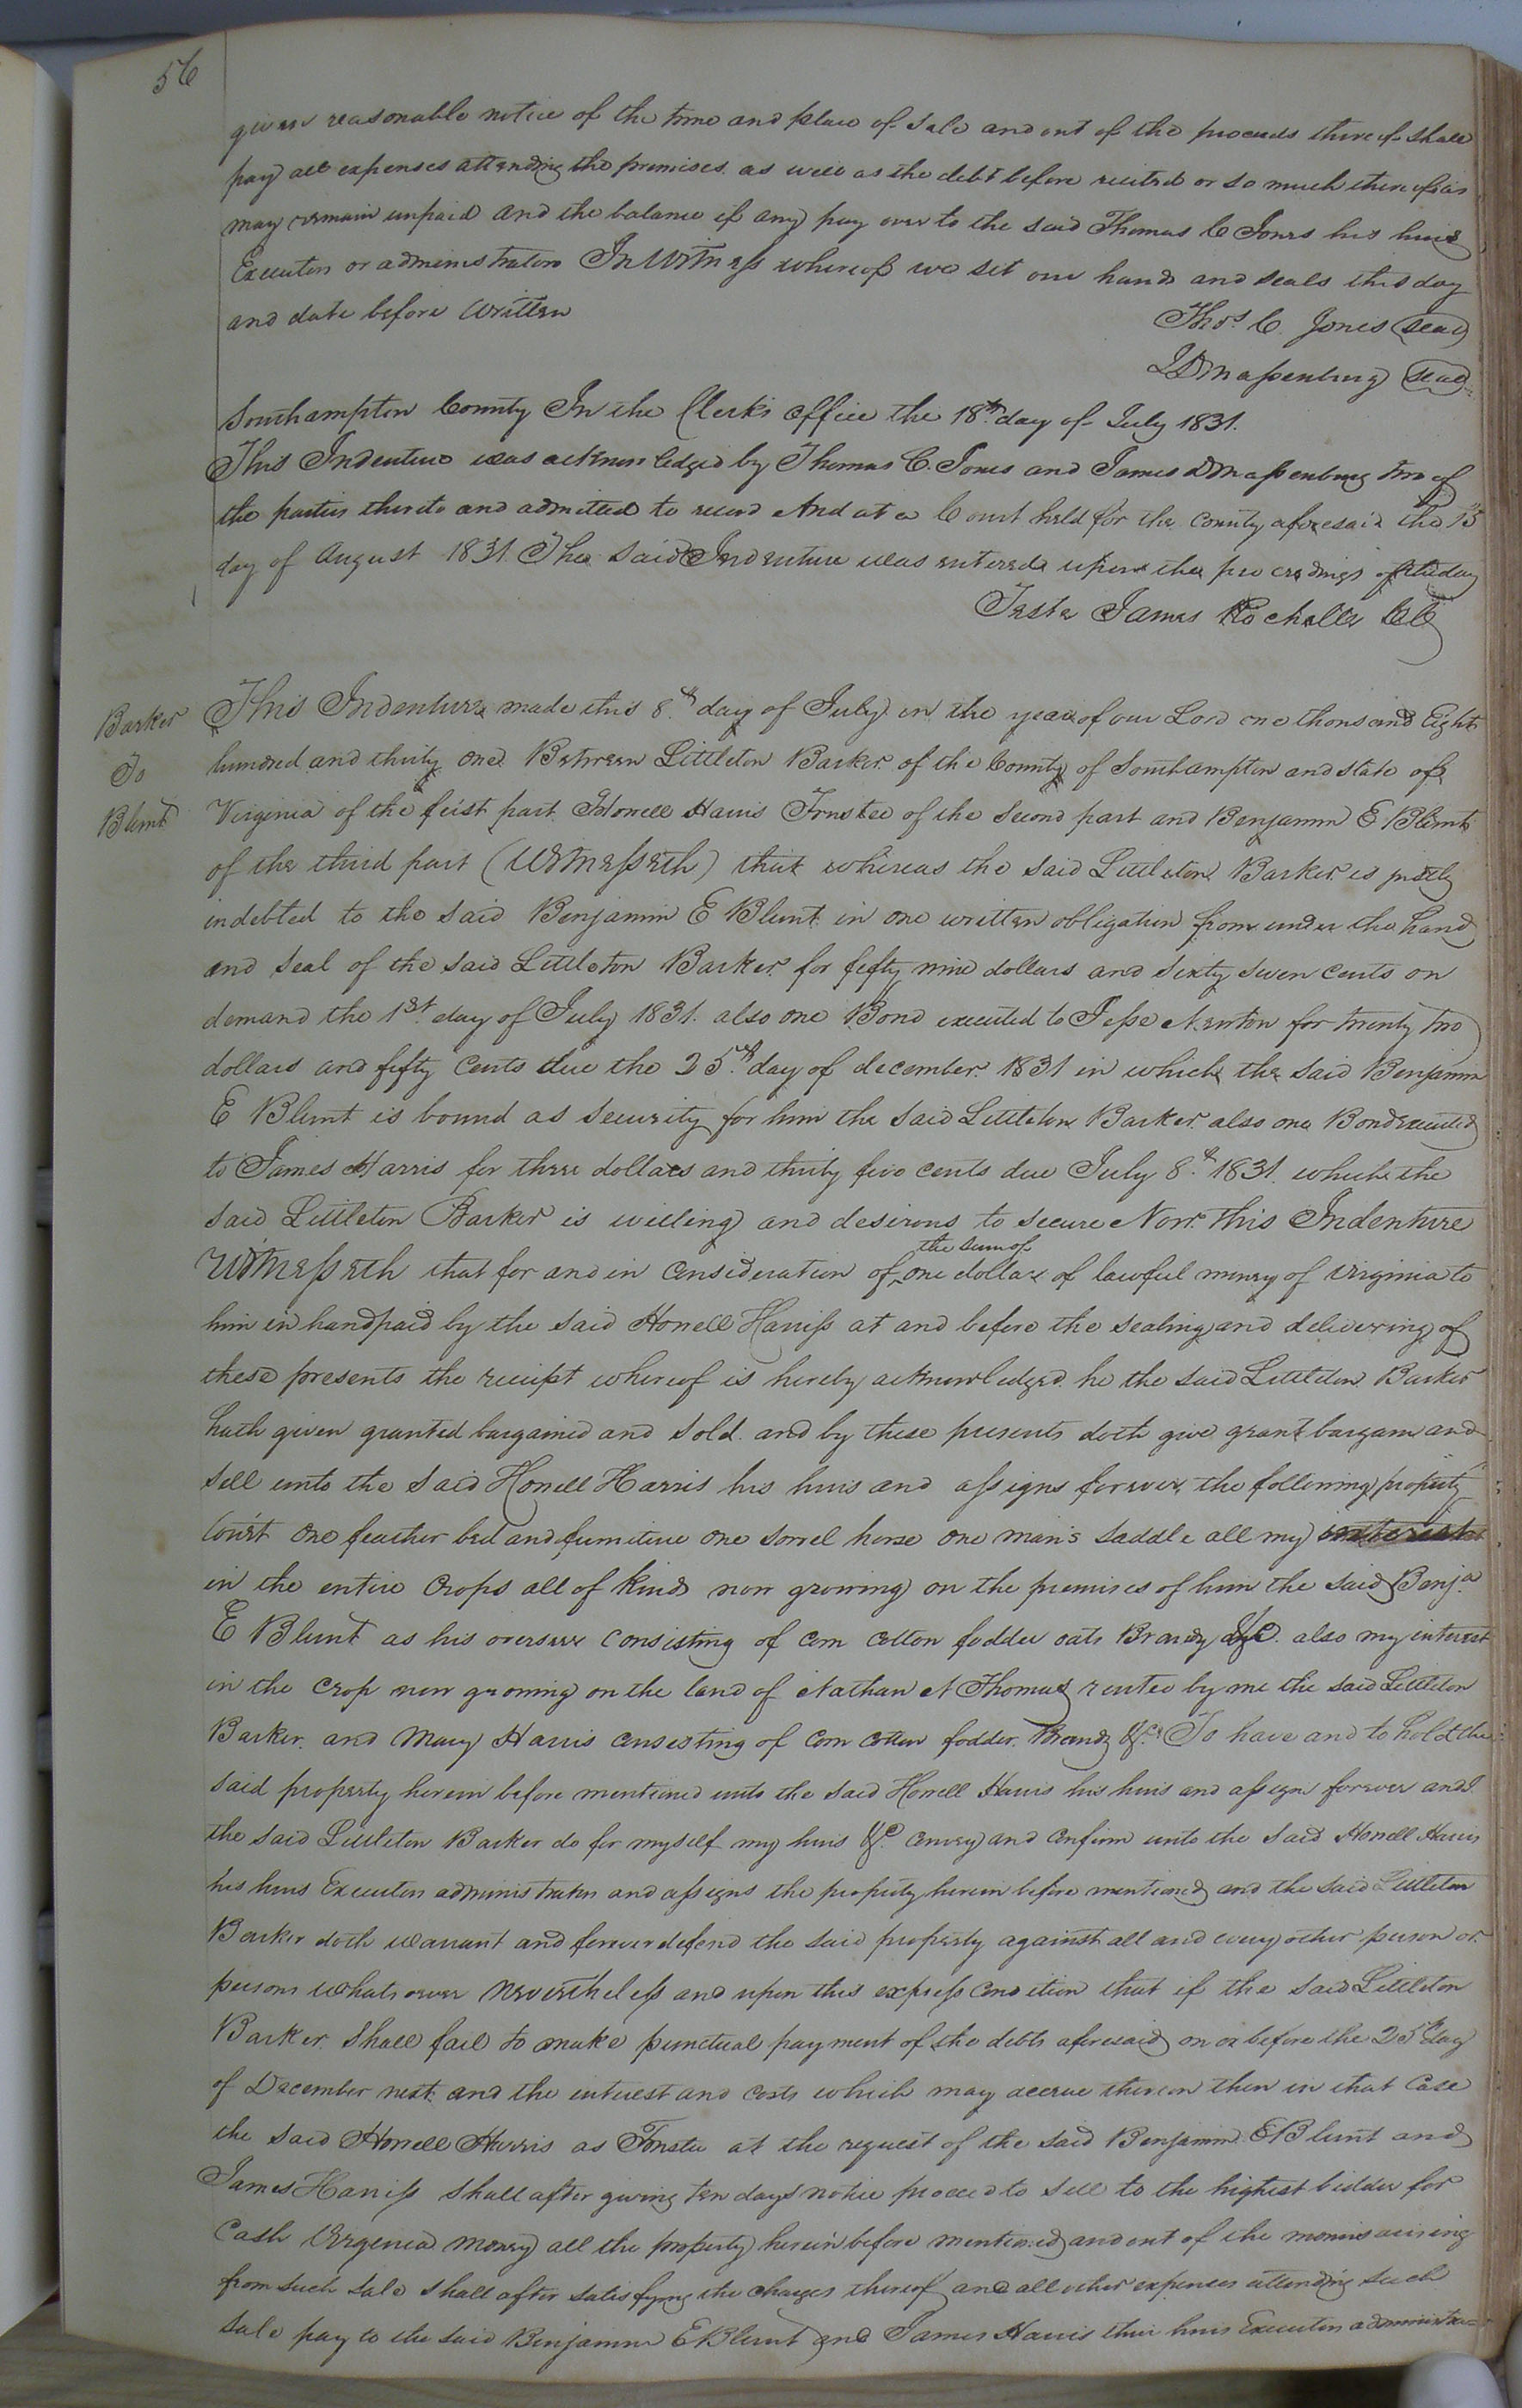 56
given reasonable notice of the time and place of sale and out of the proceeds thereof shall
pay all expenses attending the premises as well as the debt before recited or so much thereof as
may remain unpaid and the balance if any pay over to the said Thomas C Jones his heirs
Executors or administrators In Witness whereof we set our hands and seals this day
and date before written
Thos. C. Jones seal
J D Massenburg seal
Southampton County In the Clerk's Office the 18th day of July 1831.
This Indenture was acknowledged by Thomas C. Jones and James D Massenburg two of
the parties thereto and admitted to record And at a Court held for the County aforesaid the 15
day of August 1831. The said Indenture was entered upon the proceedings of the day
Teste James Rochelle CC
Barker
To
Blunt
This Indenture made this 8th day of July in the year of our Lord one thousand Eight
hundred and thirty one Between Littleton Barker of the County of Southampton and state of
Virginia of the first part Howell Harris Trustee of the second part and Benjamin E Blunt
of the third part (Witnesseth) that whereas the said Littleton Barker is justly
indebted to the said Benjamin E Blunt in one written obligation from under the hand
and seal of the said Littleton Barker for fifty nine dollars and sixty seven cents on
demand the 1st day of July 1831. also one Bond executed to Jesse Newton for twenty two
dollars and fifty Cents due the 25th day of december 1831 in which the said Benjamin
E Blunt is bound as security for him the said Littleton Barker also one Bond executed
to James Harris for three dollars and thirty five cents due July 8th 1831. which the
said Littleton Barker is willing and desirous to secure Now this Indenture
Witnesseth that for and in Consideration of the sum of one dollar of lawful money of Virginia to
him in hand paid by the said Howell Harriss at and before the sealing and delivering of
these presents the receipt whereof is hereby acknowledged he the said Littleton Barker
hath given granted bargained and sold and by these presents doth give grant bargain and
sell unto the said Howell Harris his heirs and assigns forever the following property
to wit one feather bed and furniture one sorrel horse one man's saddle all my interest
in the entire Crops all of kind now growing on the premises of him the said Benja
E Blunt as his overseer Consisting of corn cotton fodder oats Brandy &c. also my interest
in the Crop now growing on the land of Nathan N Thomas rented by me the said Littleton
Barker and Mary Harris consisting of corn cotton fodder Brandy &c. To have and to hold the
said property herein before mentioned unto the said Howell Harris his heirs and assigns forever and I
the said Littleton Barker do for myself my heirs &c. Convey and Confirm unto the said Howell Harris
his heirs Executors administrators and assigns the property herein before mentioned and the said Littleton
Barker doth warrant and forever defend the said property against all and every other person or
persons whatsoever Nevertheless and upon this express Condition that if the said Littleton
Barker shall fail to make punctual payment of the debts aforesaid on or before the 25th day
of December next and the interest and costs which may accrue thereon then in that Case
the said Howell Harris as Trustee at the request of the said Benjamin E Blunt and
James Harriss shall after giving ten days notice proceed to sell to the highest bidder for
Cash Virginia money all the property herein before mentioned and out of the monies arising
from such sale shall after satisfying the charges thereof and all other expenses attending such
sale pay to the said Benjamin E Blunt and James Harris their heirs Executors administra=